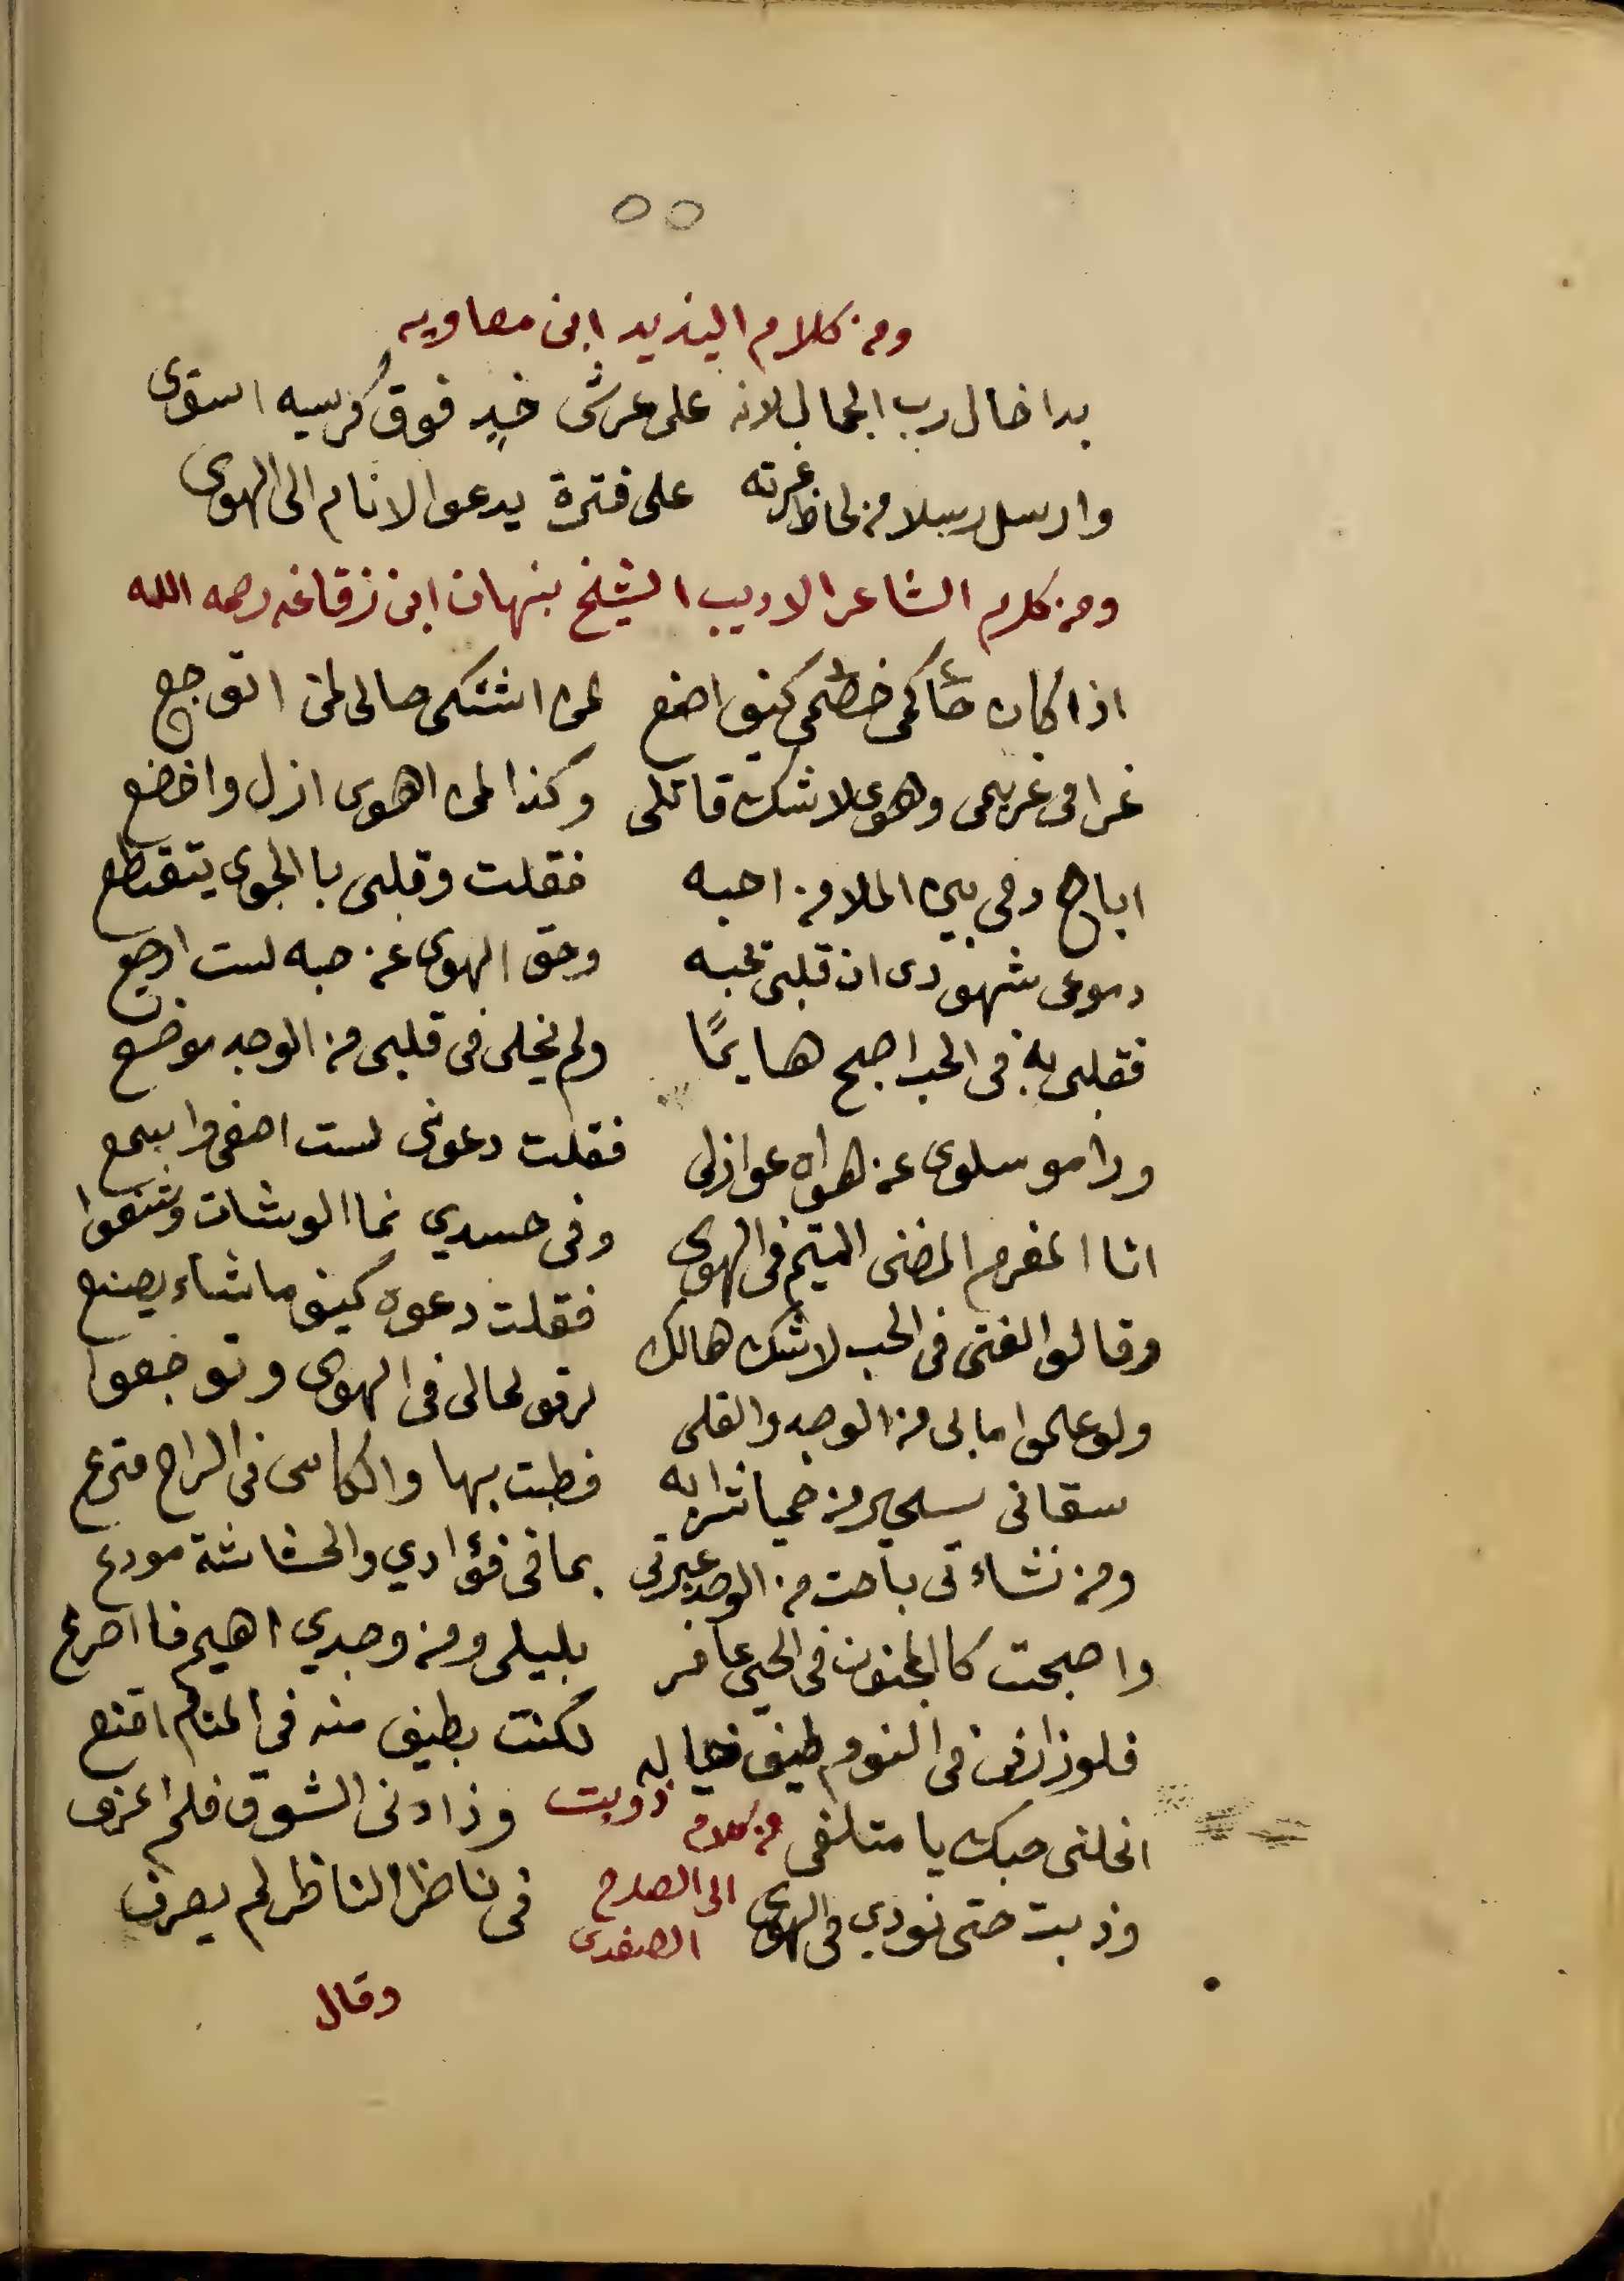 ٥٥
ومن كلام اليذيد ابن معاويه
بدا خال رب الجمال لانه على عرش خدٍ فوق كُرسيه استوى
وارسل رسلا من لحاظ غرته على فترة يدعوا الانام الى الهوى
ومن كلام الشاعر الاديب الشيخ بنهان ابن زقاغه رحمه الله
اذا كان حاكمى خصمى كيف اصنع لمن اشتكى حالى لمن اتوجع
غرامى غريمى وهو لاشك قاتلى وكذا لمن اهوى ازل واخضع
اباح دمى بين الملا من احبه فقلت وقلبى با الجوى يتقطع
دموعى شهودى ان قلبى يحبه وحق الهوى عن حبه لست ارجع
فقلبى به فى الحب اصبح هايمًا ولم يخلى فى قلبى من الوجد موضع
ورامو سلوى عن هواه عوازلى فقلت دعونى لست اصغى واسمع
انا المغرم المضنى المتيم فى الهوى وفى حسدي نما الوشات وشنعوا
وقالوا الفتى فى الحب لاشك هالك فقلت دعوه كيف ما شاء يصنع
ولو علموا مابى من الوجد والقلى لرقو لحالى فى الهوى وتوجعوا
سقانى سحير من حميا شرابه فطبت بها والكاس فى الراح مترع
ومن نشاءتى باحت من الوجد عبرتى بما فى فؤادي والحشاشة مودع
واصبحت كا المجنون فى الحى عافر بليلى ومن وجدي اهيم فا اصرع
فلو زارنى فى النوم طيف خياله لكنت بطيف منه في المنام اقنع
انحلنى حبك يا متلفى من كلام دوبت وزادنى الشوق فلم اعرف
وذبت حتى نودي فى الهوى الى الصلاح الصفدى فى ناظر الناظر لم يعرف
وقال